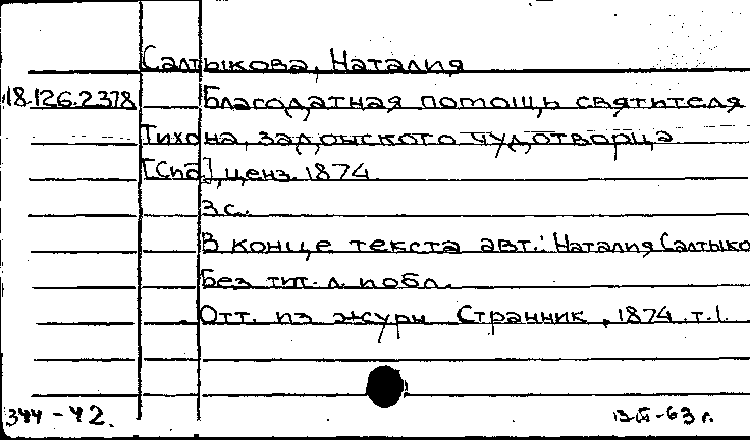 Салтыкова, Наталия
18.126.2.378 Благодатная помощь святителя
Тихона, задонского чудотворца
[Спб], ценз. 1874.
3 с.
В конце текста авт.: Наталия Салтыко
Без тит. л. и обл.
Отт. из журн Странник, 1874. т.1.
344-42. 63 г.